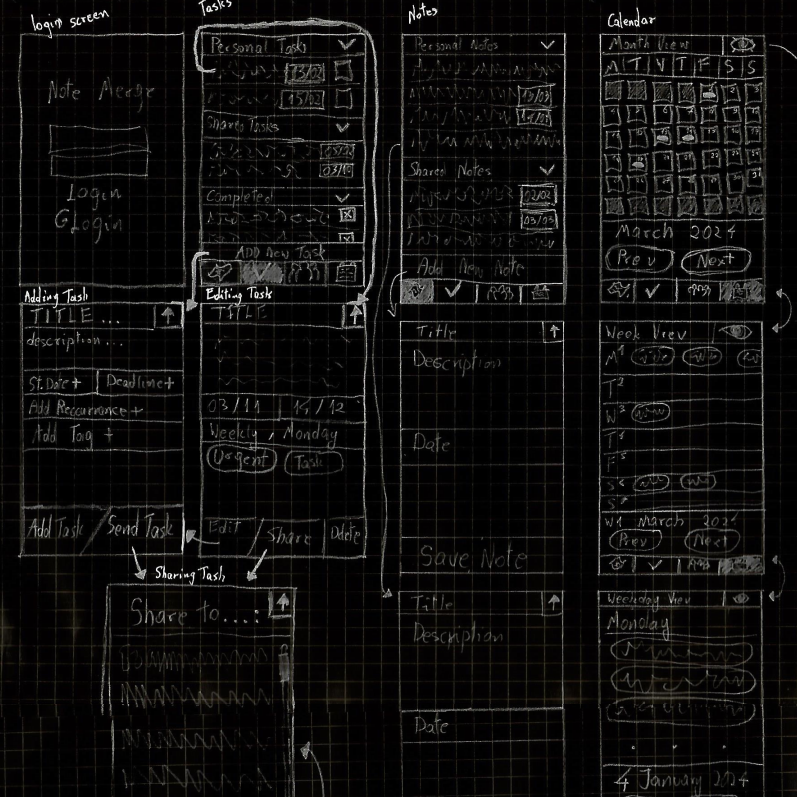 login screen
Note Merge
Login
G Login
Tasks
Personal Tasks
13/02
15/02
Shared Tasks
Completed
ADD New Task
Adding Task
TITLE ...
description ...
St. Date + Deadline +
Add Reccurrance +
Add Tag +
Add Task / Send Task
Editing Task
TITLE
03/11
Weekly, Monday
Urgent Task
Edit / Share Delete
Sharing Task
Share to....:
Notes
Personal Notes
Shared Notes
02/02
03/03
Add New Note
Title
Description
Date
Save Note
Title
Description
Date
Calendar
Month View
M T W T F S S
March 2024
Prev Next
Week View
M 1
T 2
W 3
T 4
F 5
S 6
S 7
W1 March 2024
Prev Next
Weekday View
Monday
4 January 2024